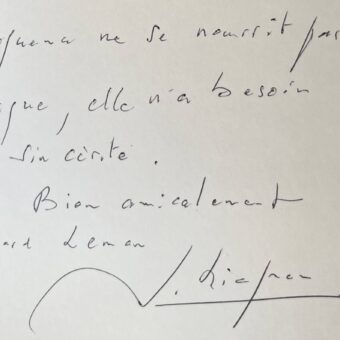 ne se nourrit pas
gue, elle n'a besoin
sincérité.
Bien amicalement
ard Leman